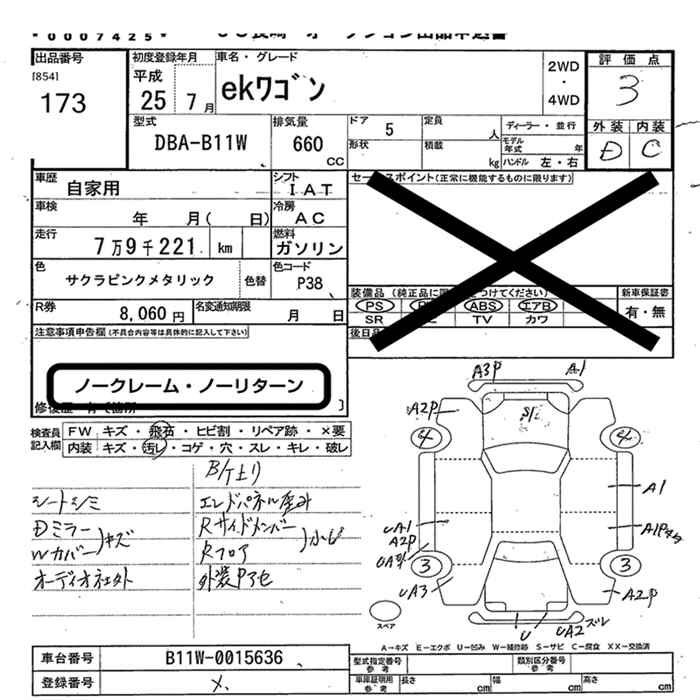 *0007425*
出品番号
[854]
173
初度登録年月
平成
25 7月
車名・グレード
ekワゴン
2WD
・
4WD
評価点
3
外装 内装
D C
型式
DBA-B11W
排気量
660
CC
ドア 5
形状
定員 人
積載 kg
ディーラー・並行
モデル年式 年
ハンドル 左・右
車歴
自家用
シフト
IAT
車検
年 月( 日)
冷房
AC
走行
7万9千221 km
燃料
ガソリン
色
サクラピンクメタリック
色替
色コード
P38
R券
8,060円
名変通知期限
月 日
セールスポイント(正常に機能するものに限ります)
新車保証書
有・無
PS ABS エアB
SR TV カワ
注意事項申告欄(不具合内容等は具体的に記入して下さい)
ノークレーム・ノーリターン
検査員記入欄
FW キズ・飛石・ヒビ割・リペア跡・×要
内装 キズ・汚レ・コゲ・穴・スレ・キレ・破レ
シートシミ
Dミラー
Wカバー
キズ
オーディオ社外
エンドパネル歪み
Rサイドメンバー
Rフロア
外装Pアセ
A3P
A1
A2P
S1
4
4
A1
UA1
A2P
3
3
UA3
A2P
U
UA2 ズレ
スペア
A→キズ E→エクボ U→凹み W→補修跡 S→サビ C→腐食 XX→交換済
車台番号
B11W-0015636
登録番号
型式指定番号
参考
類別区分番号
参考
車庫証明用
参考
長さ cm
幅 cm
高さ cm